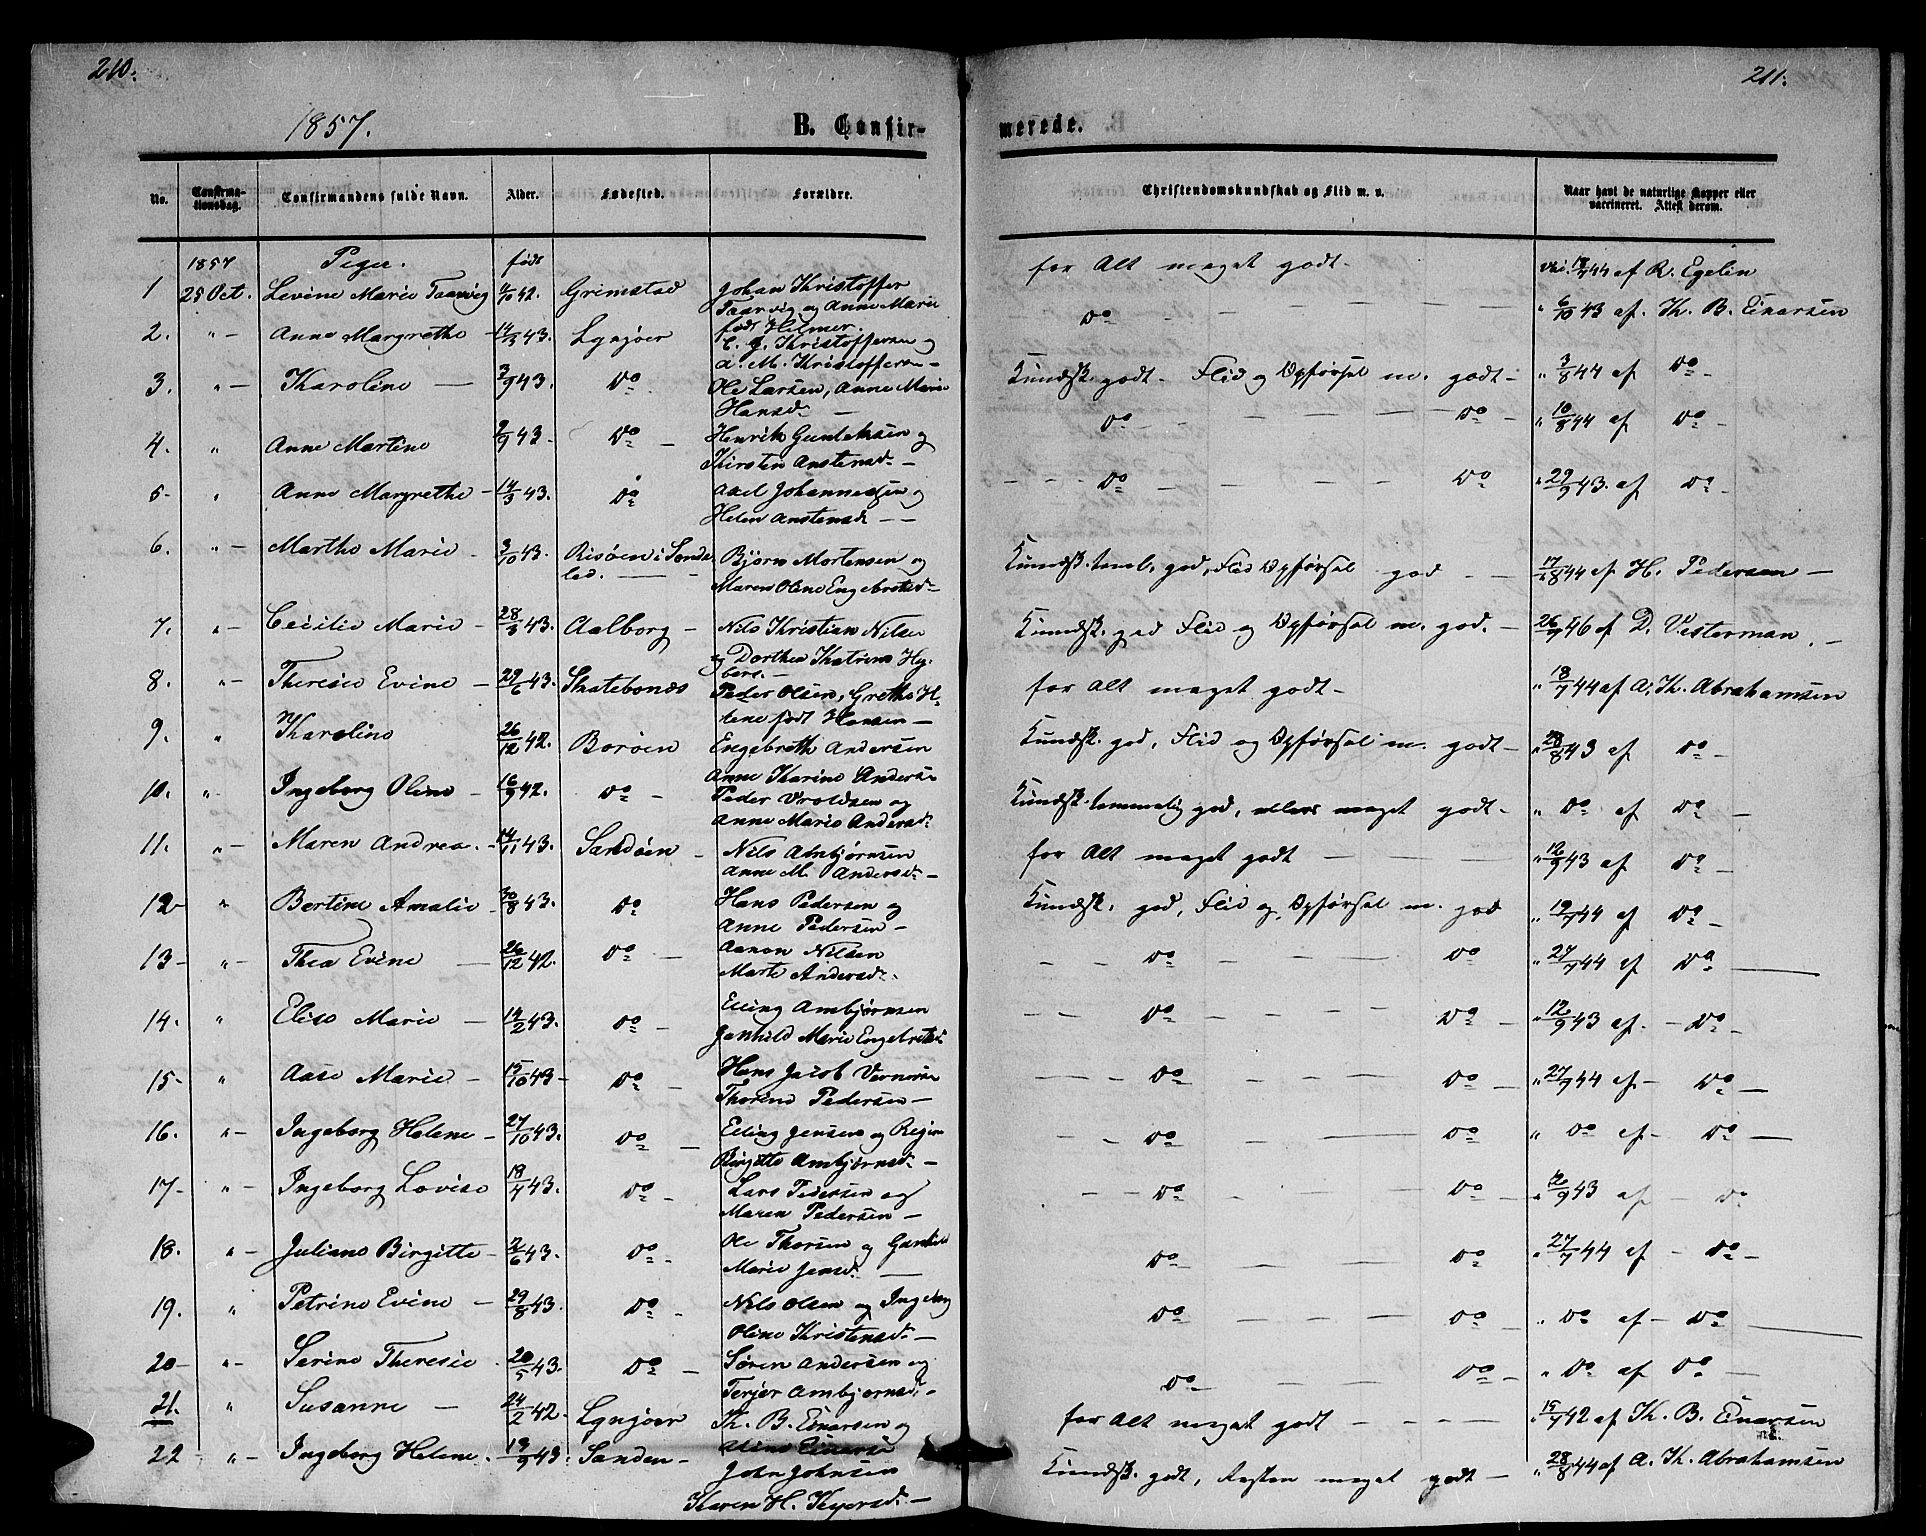 210.
211.
1857.
B. Confir-
merede.
No.
Confirma-
tionsdag.
Confirmandens fulde Navn.
Alder.
Fødested.
Forældre.
Christendomskundskab og Flid m. v.
Naar havt de naturlige Kopper eller
vaccineret. Attest derom.
1857 Piger. født
1 25 Oct. Levine Marie Taarvig 42. Grimstad Johan Kristoffer for Alt meget godt - 44 af R. Egelin
Taarvig og Anne Marie
født Helmer.
2. " - Anne Margrethe - 43. Lyngøer C. J. Kristoffersen og Do - - - " 6/10 43 af. Th. B. Einarsen
A. M. Kristoffersen -
3. " - Karoline - 3/9 43. Do. Ole Larsen, Anne Marie Kundsk. godt - Flid og Opførsel m. godt - " 3/8 44 af Do -
Hansd. -
4. " Anne Martine 2/9 43 - Do - Henrik Guntelsen og Do - - - Do - " 10/8 44 af Do -
Kirsten Anstensd. -
5 - " Anne Margrethe - 14/3 43. Do Axel Johannessen og - - - Do - - - Do - " 29/9 43. af Do -
Helen Anstensd - -
6. " - Marthe Marie - 3/10 43. Risøen i Sønde Bjørn Mortensen og Kundsk. teml. god, Flid Opførsel god - - 17/8 44 af H. Pedersen -
led. - Maren Oline Engebretsd -
7. " - Cecilie Marie - 28/3 43. Aalborg - Nils Kristian Nilsen Kundsk. god Flid og Opførsel m. god. - 46 af D. Vesterman . -
og Dorthea Katrine Hy-
berg. -
8. " - Theresie Evine - 29/6 43. Skatebonæs Peder Olsen, Grethe He- for Alt meget godt - " 18/7 44 af A. Th. Abrahamsen
lene født Hansen -
9. " Karoline 26/12 42. Borøen Engebreth Andersen Kundsk. god, Flid og Opførsel m. godt - " 28/8 43 af Do -
Anne Karine Anders
10. " - Ingeborg Oline - 16/9 42. Do - Peder Vroldsen og Kundsk. temmelig god, ellers meget godt - " Do af Do -
Anne Marie Andersd.
11. " - Maren Andrea. - 14/11 43. Sandøen - Nils Ambjørnsen for Alt meget godt - - - " 12/9 43 af Do -
Anne M. Andersd. -
12 - " Bertine Amalie - 30/8 43. Do Hans Pedersen og Kundsk. god, Flid og Opførsel m. god " 19/7 44 af Do -
Anne Pedersen -
13 - " - Thea Evine - 26/12 42. Do - Aanon Nilsen - - Do - - - Do - " 27/7 44 af Do -
Marte Andersd. -
14. " Elise Marie - 14/2 43. Do - Elling Ambjørnsen - Do - - - Do - " 12/9 43 af. - Do -
Gunhild Marie Engebretsd
15 - " Aase Marie - 15/10 43 - Do - Hans Jacob Vernersen - - - Do - - - Do - " 27/9 44 af - Do -
Thorine Pedersen -
16. " - Ingeborg Helene - 27/10 43. Do - Elling Jensen og Regine - - Do - - Do - " Do af - Do -
Birgitte Ambjørnsd. -
17 - " - Ingeborg Lovise 18/4 43. Do - Lars Pedersen og - - Do - - - Do - " 12/9 43 af - Do
Maren Pedersen -
18. " - Juliane Birgitte - 2/6 43. Do - Ole Thorsen og Gunhild Do - - - Do - " 27/7 44 af - Do -
Marie Jensd. -
19. " Petrine Evine - 29/8 43. Do - Nils Olsen og Ingeborg Do - - - Do - " Do af - Do -
Oline Kristensd. -
20 - " - Serine Theresie - 20/5 43. Do - Søren Andersen og Do - - - Do - " Do af Do -
Terjer Ambjørnsd. -
21. " Susanne - 24/2 42. Lyngøer Th. B. Einarsen og for Alt meget godt - - - - " 15/7 42 af Th. B. Einarsen
Einarsen
22 - " - Ingeborg Helene. 19/9 43. Sanden - John Johnsen Kundsk. godt, Resten meget godt - " 28/8 44 af A. Th. Abrahamsen
Karen H. -